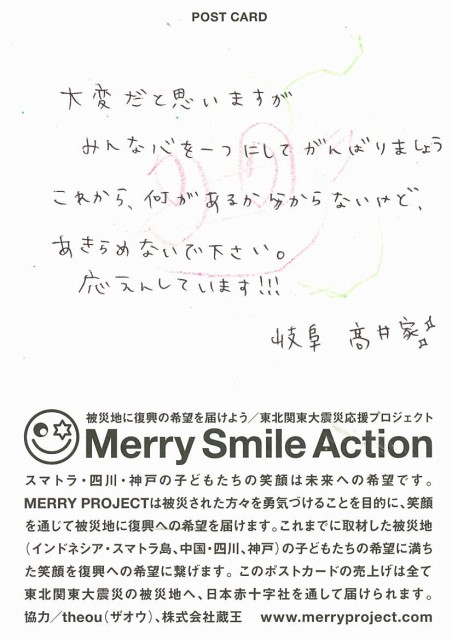 POST CARD
大変だと思いますが
みんな心を一つにしてがんばりましょう
これから、何があるか分からないけど、
あきらめないで下さい。
応えんしています!!!
岐阜 髙井家
被災地に復興の希望を届けよう/東北関東大震災応援プロジェクト
Merry Smile Action
スマトラ・四川・神戸の子どもたちの笑顔は未来への希望です。
MERRY PROJECTは被災された方々を勇気づけることを目的に、笑顔
を通じて被災地に復興への希望を届けます。これまでに取材した被災地
(インドネシア・スマトラ島、中国・四川、神戸)の子どもたちの希望に満ち
た笑顔を復興への希望に繋げます。このポストカードの売上げは全て
東北関東大震災の被災地へ、日本赤十字社を通して届けられます。
協力/theou(ザオウ)、株式会社蔵王 www.merryproject.com